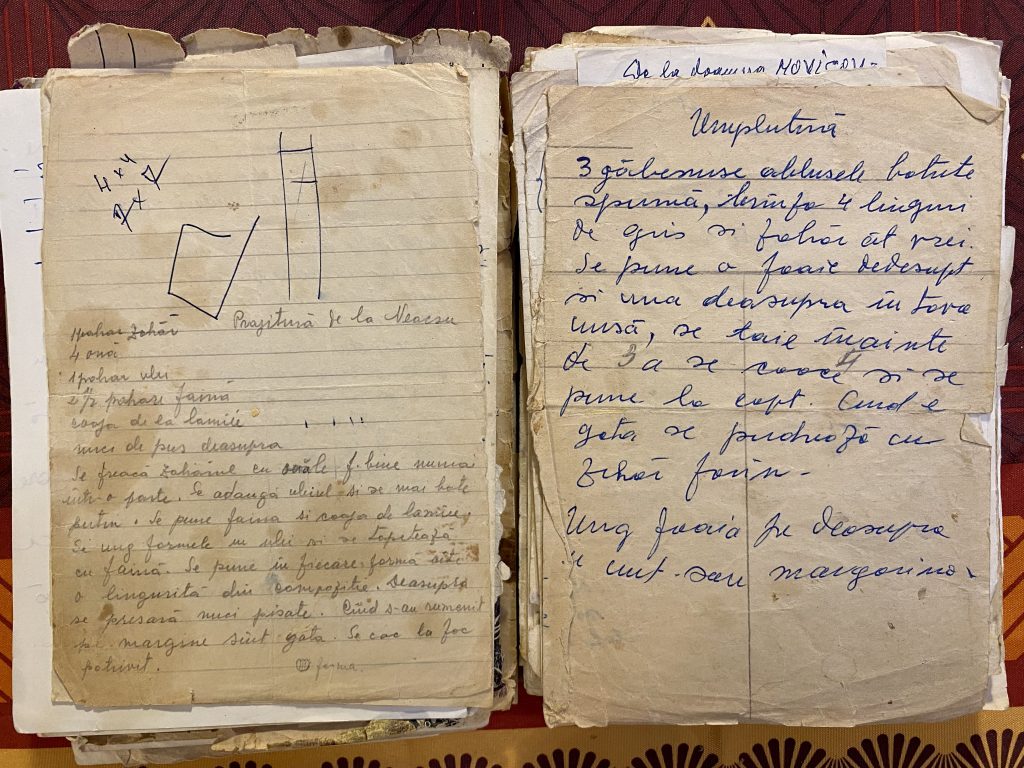 4 x 4
2 x
Prajitură de la Neacsu
1 pahar zahăr
4 ouă
1 pahar ulei
2 1/2 pahare faină
coaja de la lamiie
nuci de pus deasupra
Se freacă zahărul cu ouăle f. bine numai
intr-o parte. Se adaugă uleiul si se mai bate
putin. Se pune faina si coaja de lamiie.
Se ung formele cu ulei si se tapetează
cu faină. Se pune in fiecare formă cite
o linguriță din compoziție. Deasupra
se presară nuci pisate. Cînd s-au rumenit
pe margine sînt gata. Se coc la foc
potrivit.
forma
De la doamna
Umplutură
3 găbenuse albusele batute
spumă, 4 linguri
de gris si zahăr cît vrei.
Se pune o foaie dedesupt
si una deasupra în tava
unsă, se taie înainte
de a se coace si se
pune la copt. Cind e
gata se pudrează cu
zahăr farin.
Ung foaia pe deasupra
cu unt sau margarina.